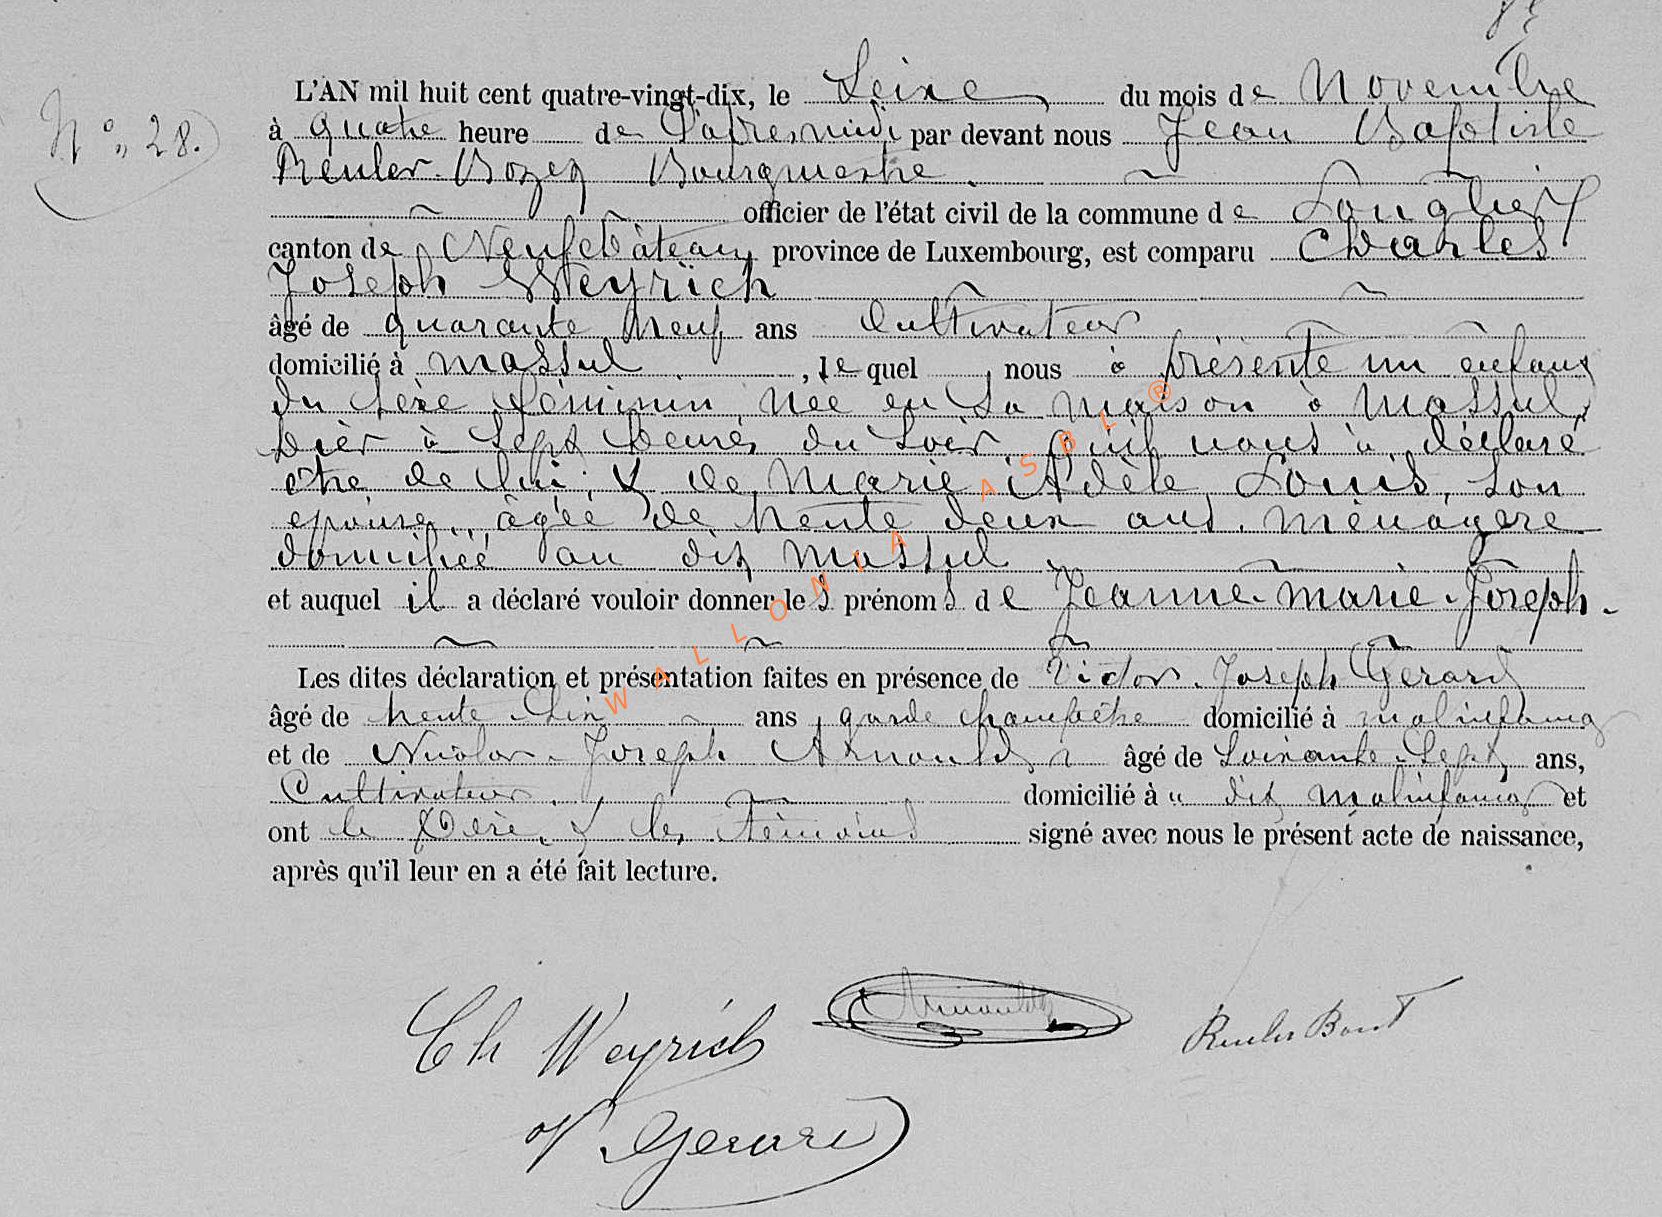 N° 28.
L'AN mil huit cent quatre-vingt-dix, le Seize du mois de Novembre
à quatre heure de l'aprésmidi par devant nous Jean Baptiste
Reuler-Bozet Bourgmestre
officier de l'état civil de la commune de Longlier
canton de Neufchâteau province de Luxembourg, est comparu Charles
Joseph Weyrich
âgé de quarante neuf ans Cultivateur
domicilié à Massul, lequel nous à présenté un enfant
du sèxe féminin, née en sa maison à Massul,
hièr à sept heures du soir, qu'il nous à déclaré
être de lui, & de Marie Adèle Louis, son
épouse, âgée de trente deux ans, ménagère
domiciliée au dit Massul.
et auquel il a déclaré vouloir donner les prénoms de Jeanne-Marie-Joseph.
Les dites déclaration et présentation faites en présence de Victor-Joseph Gerard
âgé de trente Six ans, garde champêtre domicilié à Molinfaing
et de Nicolas-Joseph Arnould, âgé de Soixante-Sept ans,
Cultivateur, domicilié à dit Molinfaing et
ont le Père & les témoins signé avec nous le présent acte de naissance,
après qu'il leur en a été fait lecture.
Ch Weyrich Arnould Reuler Bozet
V. Gerard
WALLONIA ASBL ®